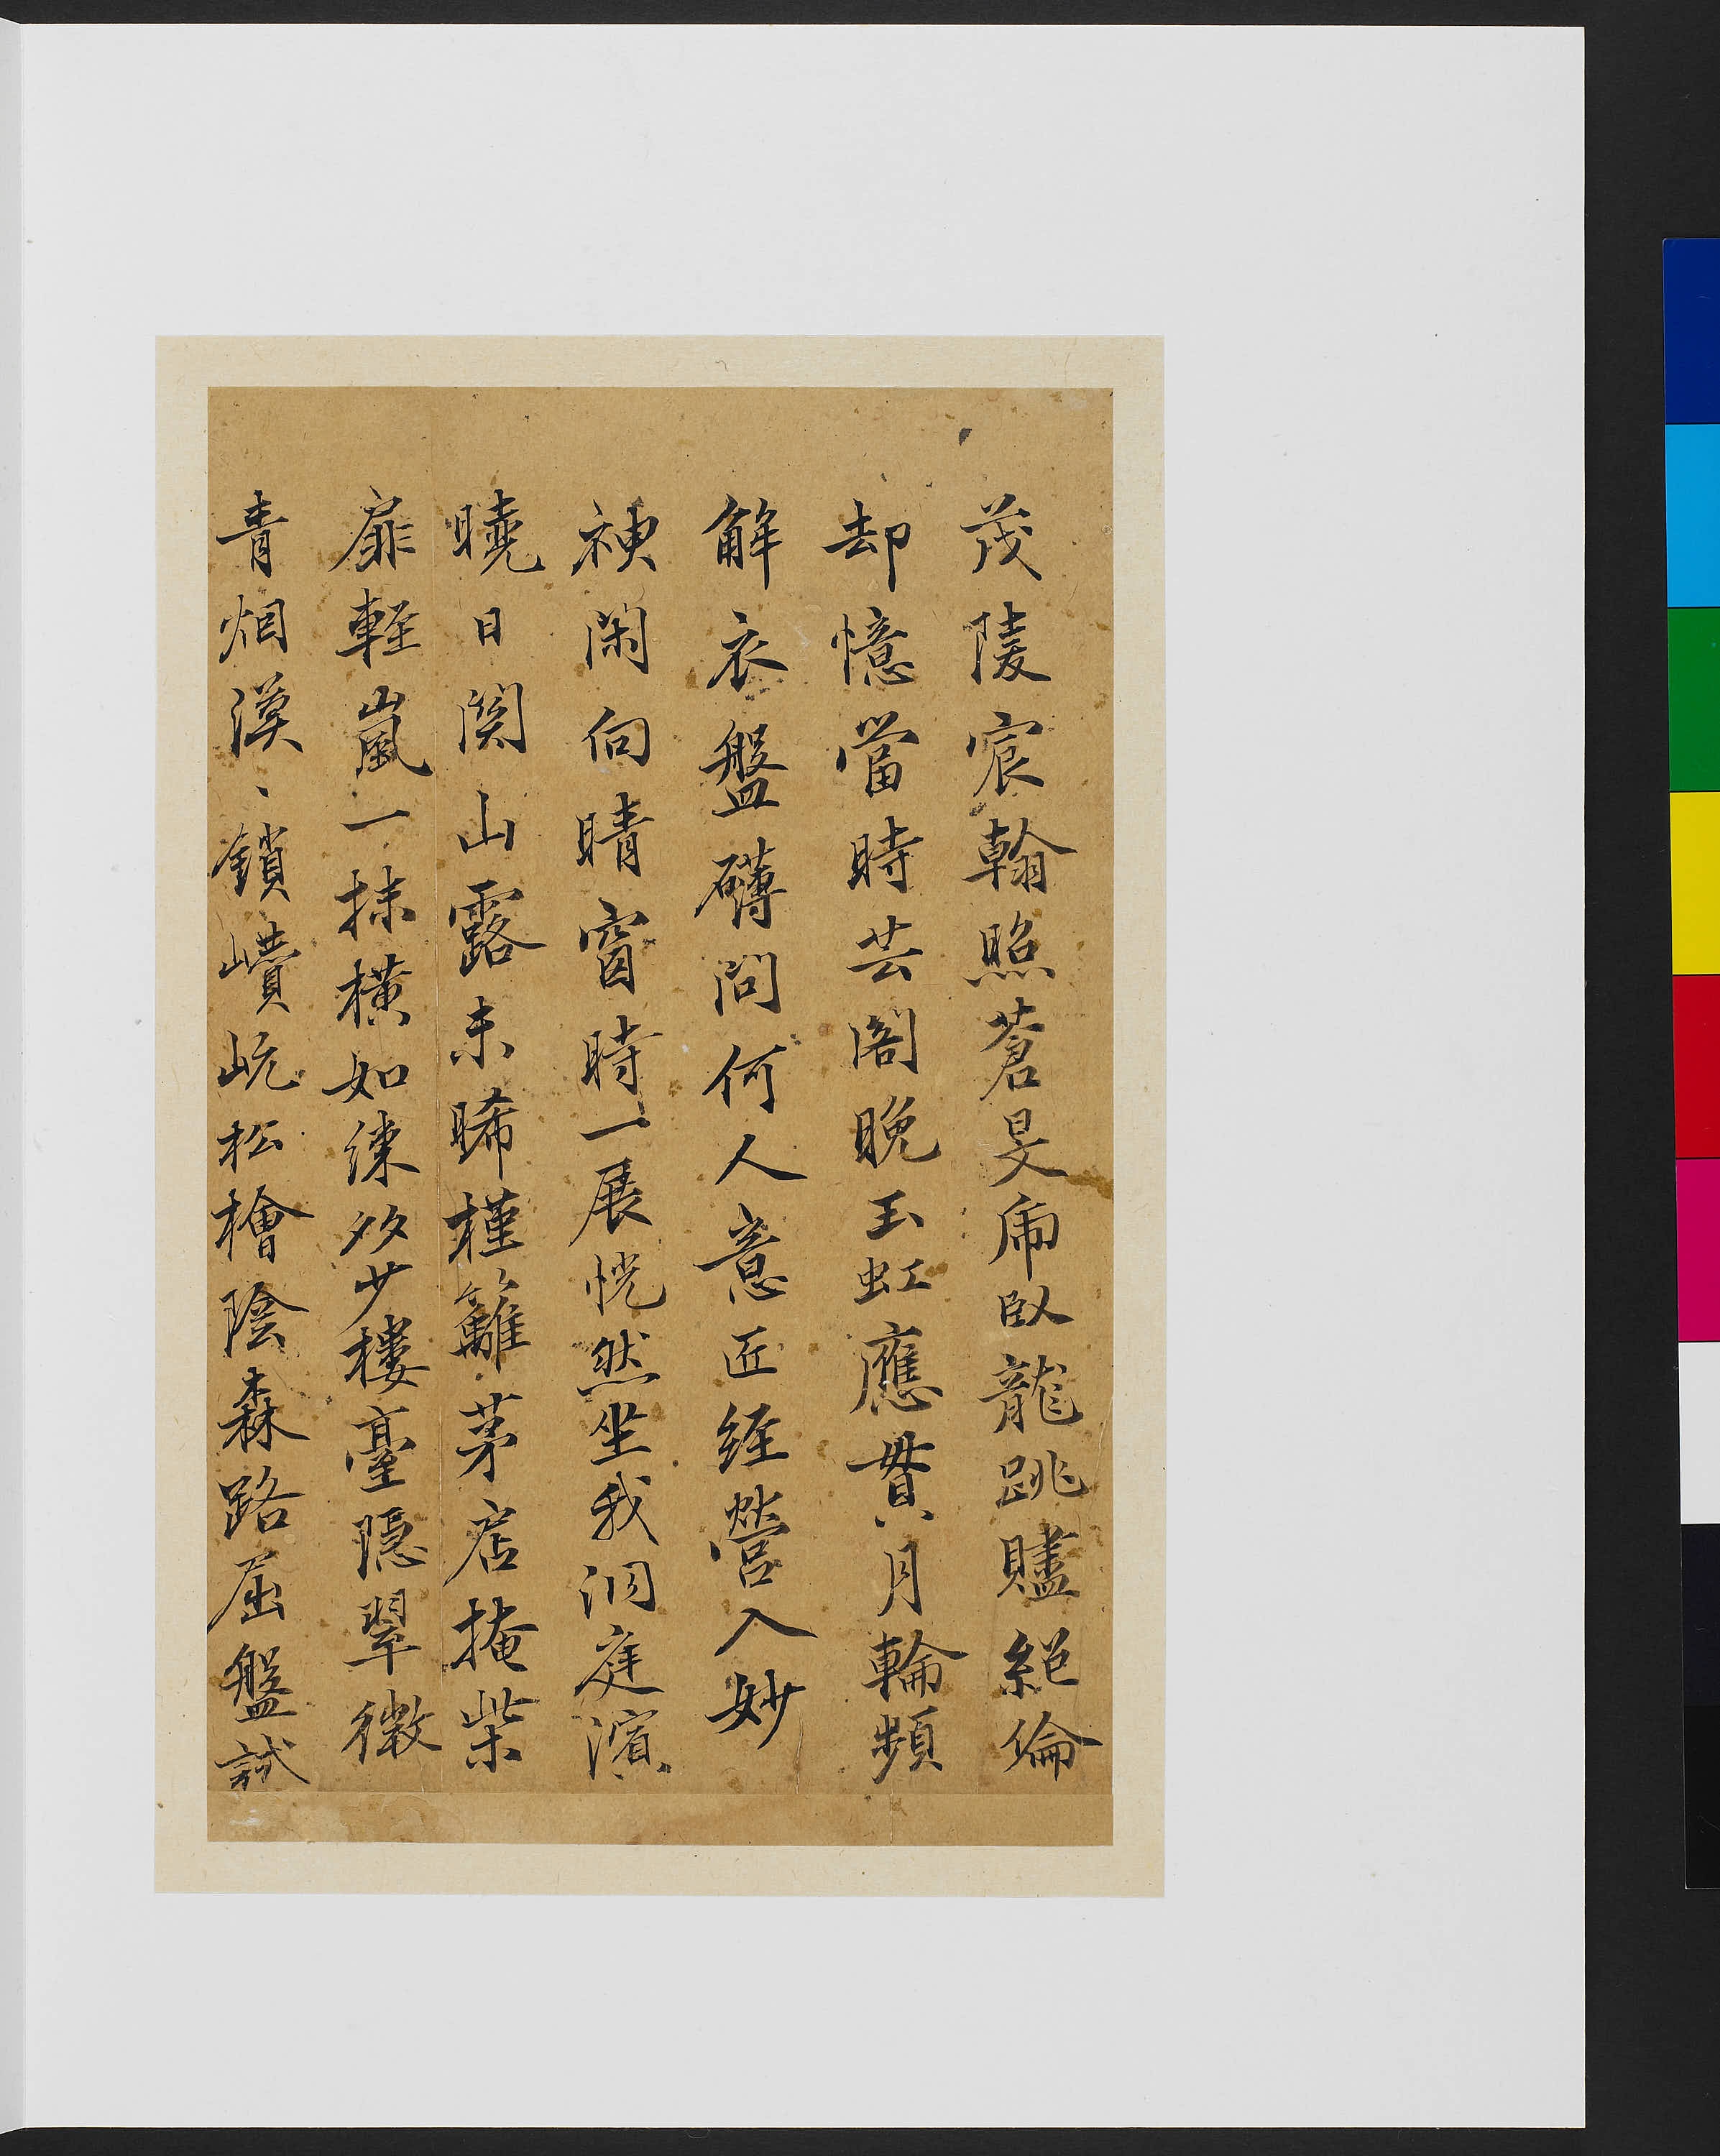 茂陵宸翰照蒼旻虎臥龍跳贐絕倫
却憶當時芸閣晚玉虹應貫月輪頻
解衣盤礴問何人意匠經營入妙
神閑向晴窗時一展恍然坐我洞庭濱
曉日関山露未晞槿籬茅店掩柴
扉輕嵐一抹橫如練多少樓臺隱翠微
青烟漠〻鎖巑岏松檜陰森路屈盤試